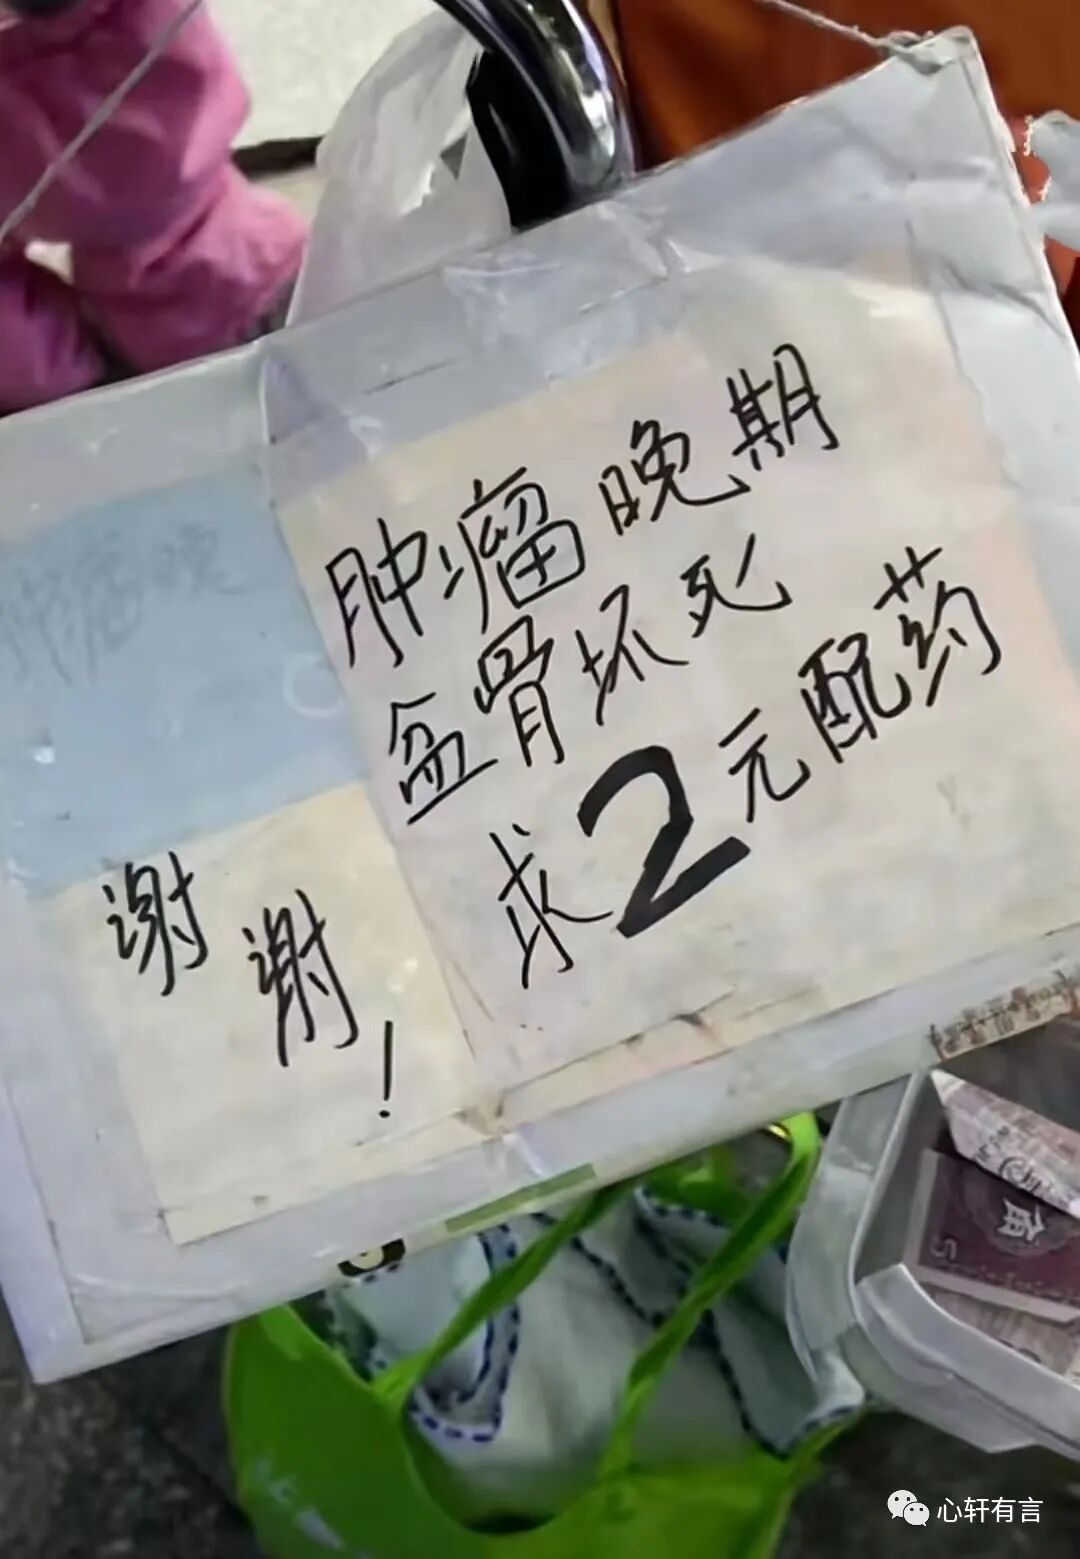 肿瘤晚期
盆骨坏死
求2元配药
谢谢！
5
心轩有言